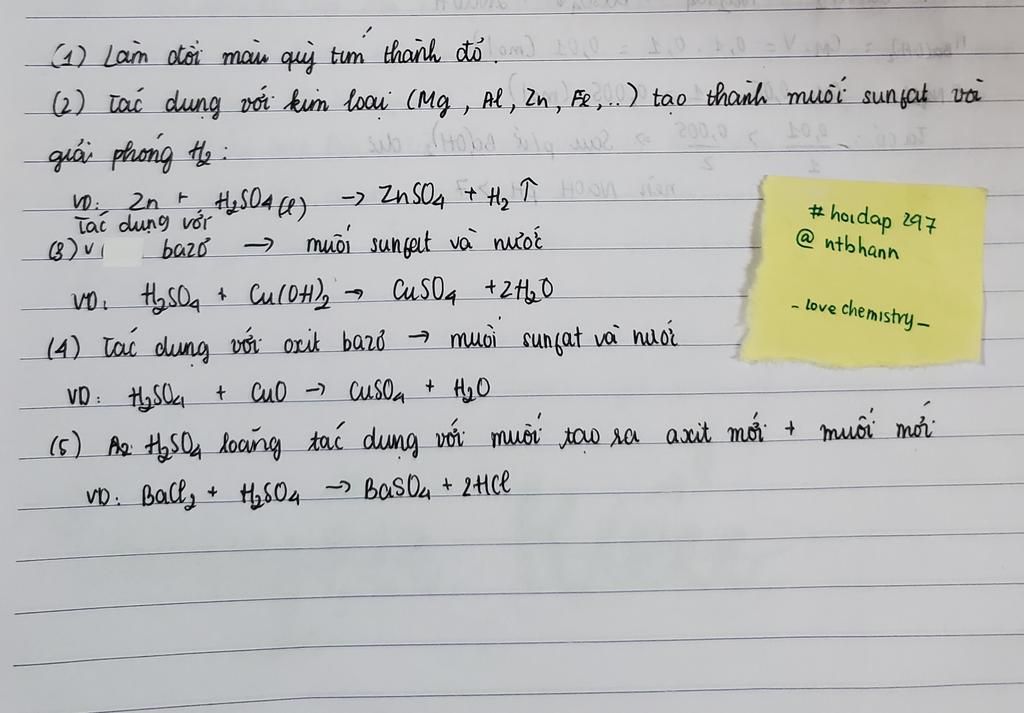 (1) Làm đổi màu quỳ tím thành đỏ.
(2) Tác dụng với kim loại (Mg, Al, Zn, Fe,..) tạo thành muối sunfat và
giải phóng H₂:
VD: Zn + H₂SO₄(l) → ZnSO₄ + H₂ ↑
Tác dụng với
(3) v bazơ → muối sunfat và nước
VD: H₂SO₄ + Cu(OH)₂ → CuSO₄ + 2H₂O
(4) Tác dụng với oxit bazơ → muối sunfat và nước
VD: H₂SO₄ + CuO → CuSO₄ + H₂O
(5) H₂SO₄ loãng tác dụng với muối tạo ra axit mới + muối mới
VD: BaCl₂ + H₂SO₄ → BaSO₄ + 2HCl
# hoidap 247
@ ntbhann
- love chemistry -